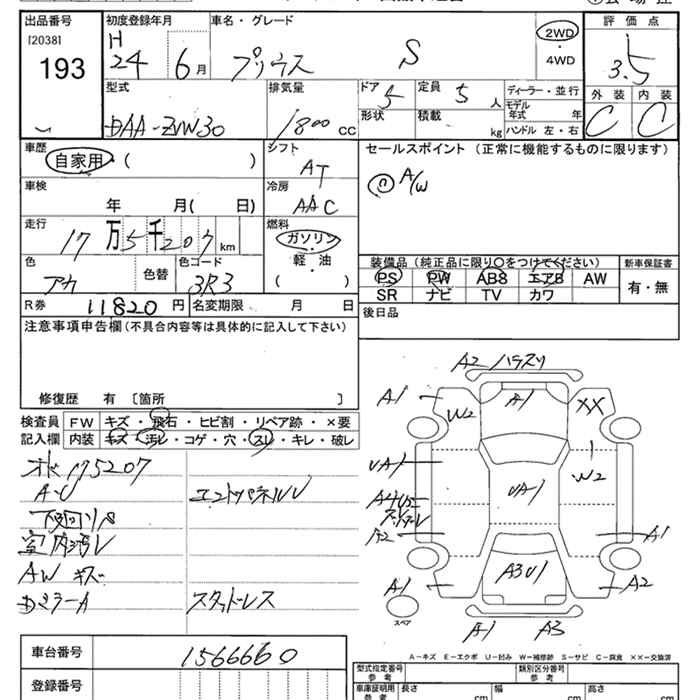 出品番号 初度登録年月 車名・グレード 評価点
[2038] H
193 24 6月 プリウス S 2WD・4WD 3.5
型式 排気量 ドア 5 定員 5人 ディーラー・並行 外装 内装
DAA-ZVW30 1800 cc 形状 積載 kg モデル年式 年 C C
ハンドル 左・右
車歴 シフト セールスポイント (正常に機能するものに限ります)
自家用・( ) AT A/W
車検 冷房
年 月( 日) AAC
走行 燃料
17万5千207km ガソリン
色 色替 色コード 軽・油 装備品(純正品に限り○をつけてください) 新車保証書
アカ 3R3 ( ) PS PW ABS エアB AW 有・無
SR ナビ TV カワ
R券 11820円 名変期限 月 日 後日品
注意事項申告欄(不具合内容等は具体的に記入して下さい)
修復歴 有 〔箇所 〕
検査員 FW キズ・飛石・ヒビ割・リペア跡・×要
記入欄 内装 キズ・汚レ・コゲ・穴・スレ・キレ・破レ
175207
A・U
室内汚レ
AW キズ
Dミラー A スタッドレス
A2
A1 W2 A1 XX A1
UA1 W2
UA1
A2 A1
A1 A3U1 A2
スペア
A1 A3
A-キズ E-エクボ U-凹み W-補修跡 S-サビ C-腐食 ××-交換済
車台番号 1566660 型式指定番号 参考 類別区分番号 参考
登録番号 車庫証明用 参考 長さ cm 幅 cm 高さ cm